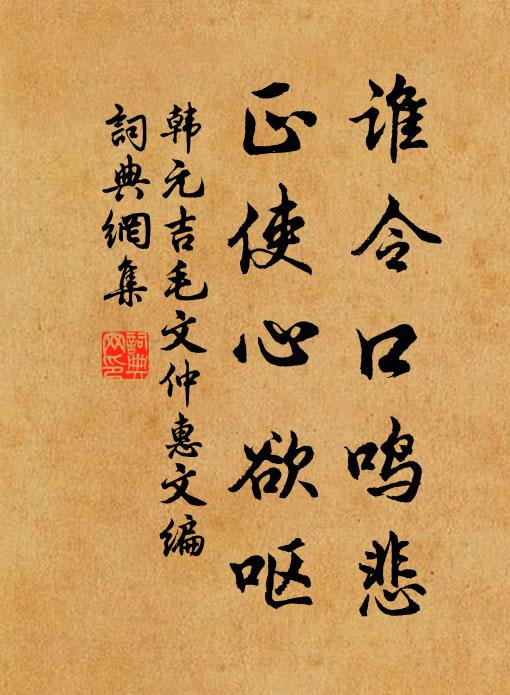 谁令口鸣悲
正使心欲呕
韩元吉毛文仲惠文编
詞典網集
詞典
网印